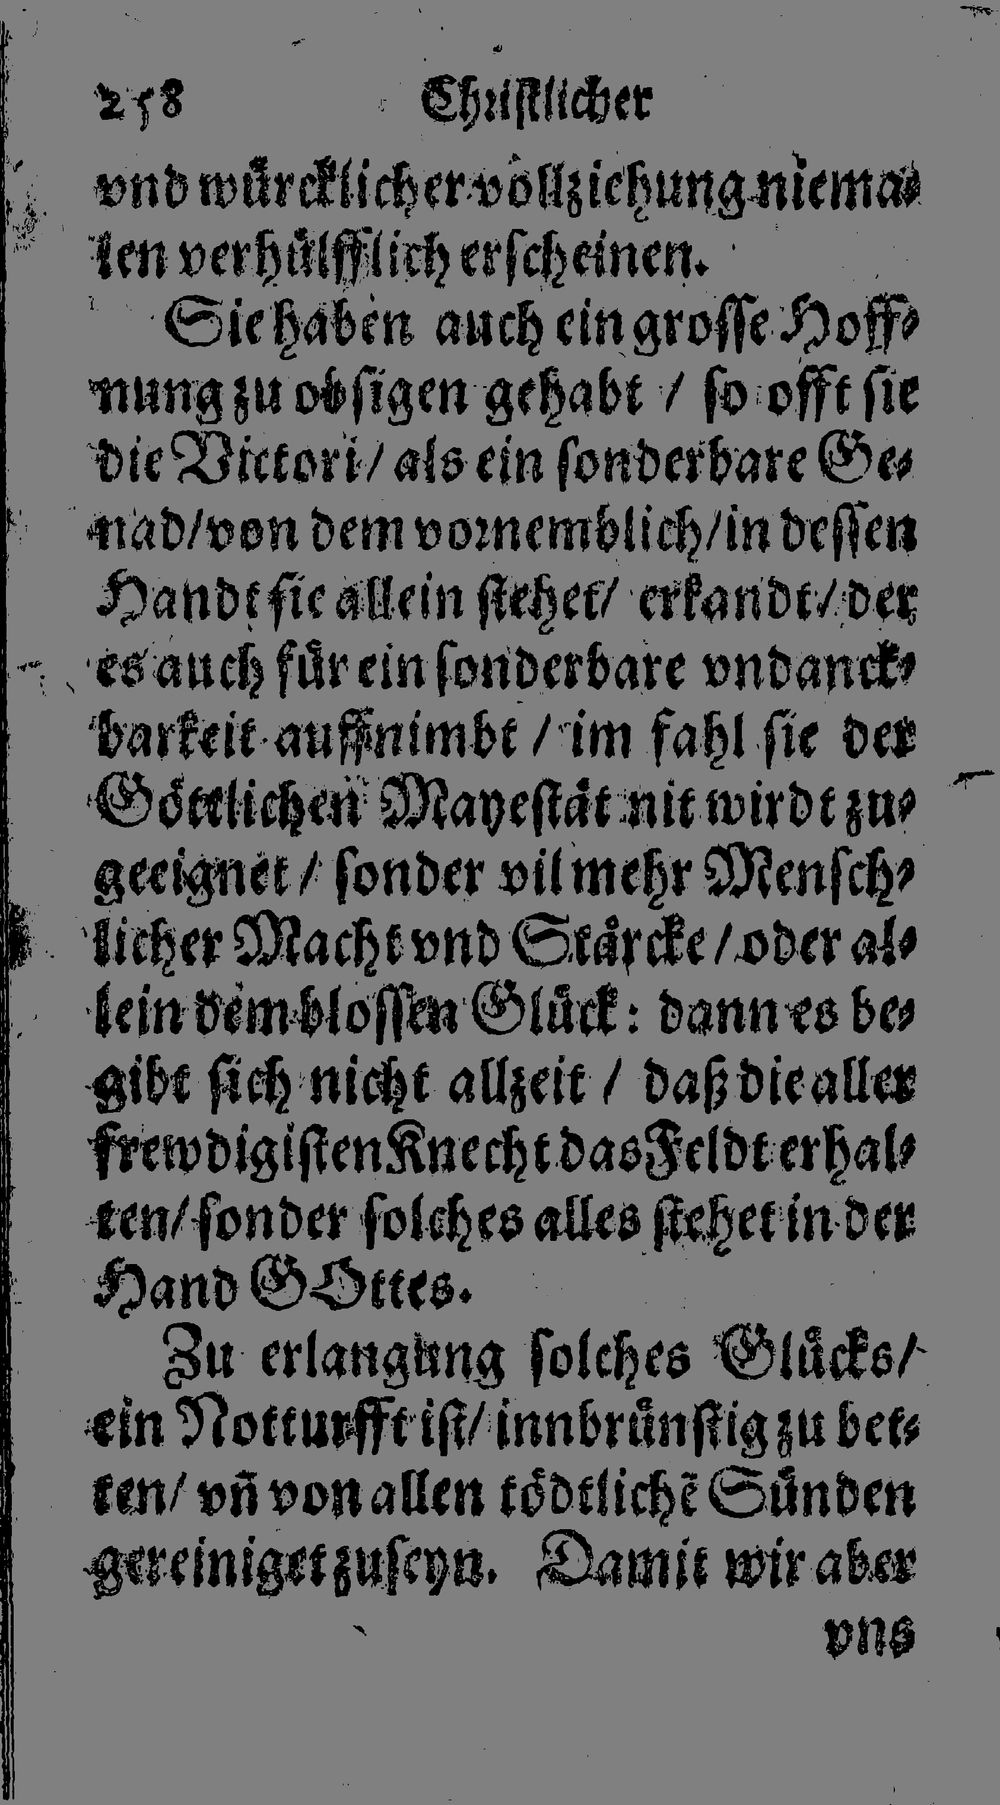 258 Christlicher
vnd würcklicher vollziehung niema⸗
len verhülfflich erscheinen.
Sie haben auch ein grosse Hoff⸗
nung zu obsigen gehabt / so offt sie
die Victori / als ein sonderbare Ge⸗
nad / von dem vornemblich / in dessen
Handt sie allein stehet / erkandt / der
es auch für ein sonderbare vndanck⸗
barkeit auffnimbt / im fahl sie der
Göttlichen Mayestät nit wirdt zu⸗
geeignet / sonder vil mehr Mensch⸗
licher Macht vnd Stärcke / oder al⸗
lein dem blossen Glück: dann es be⸗
gibt sich nicht allzeit / daß die aller
frewdigisten Knecht das Feldt erhal⸗
ten / sonder solches alles stehet in der
Hand GOttes.
Zu erlangung solches Glücks /
ein Notturfft ist / innbrünstig zu bet⸗
ten / vñ von allen tödtlichẽ Sünden
gereiniget zuseyn. Damit wir aber
vns